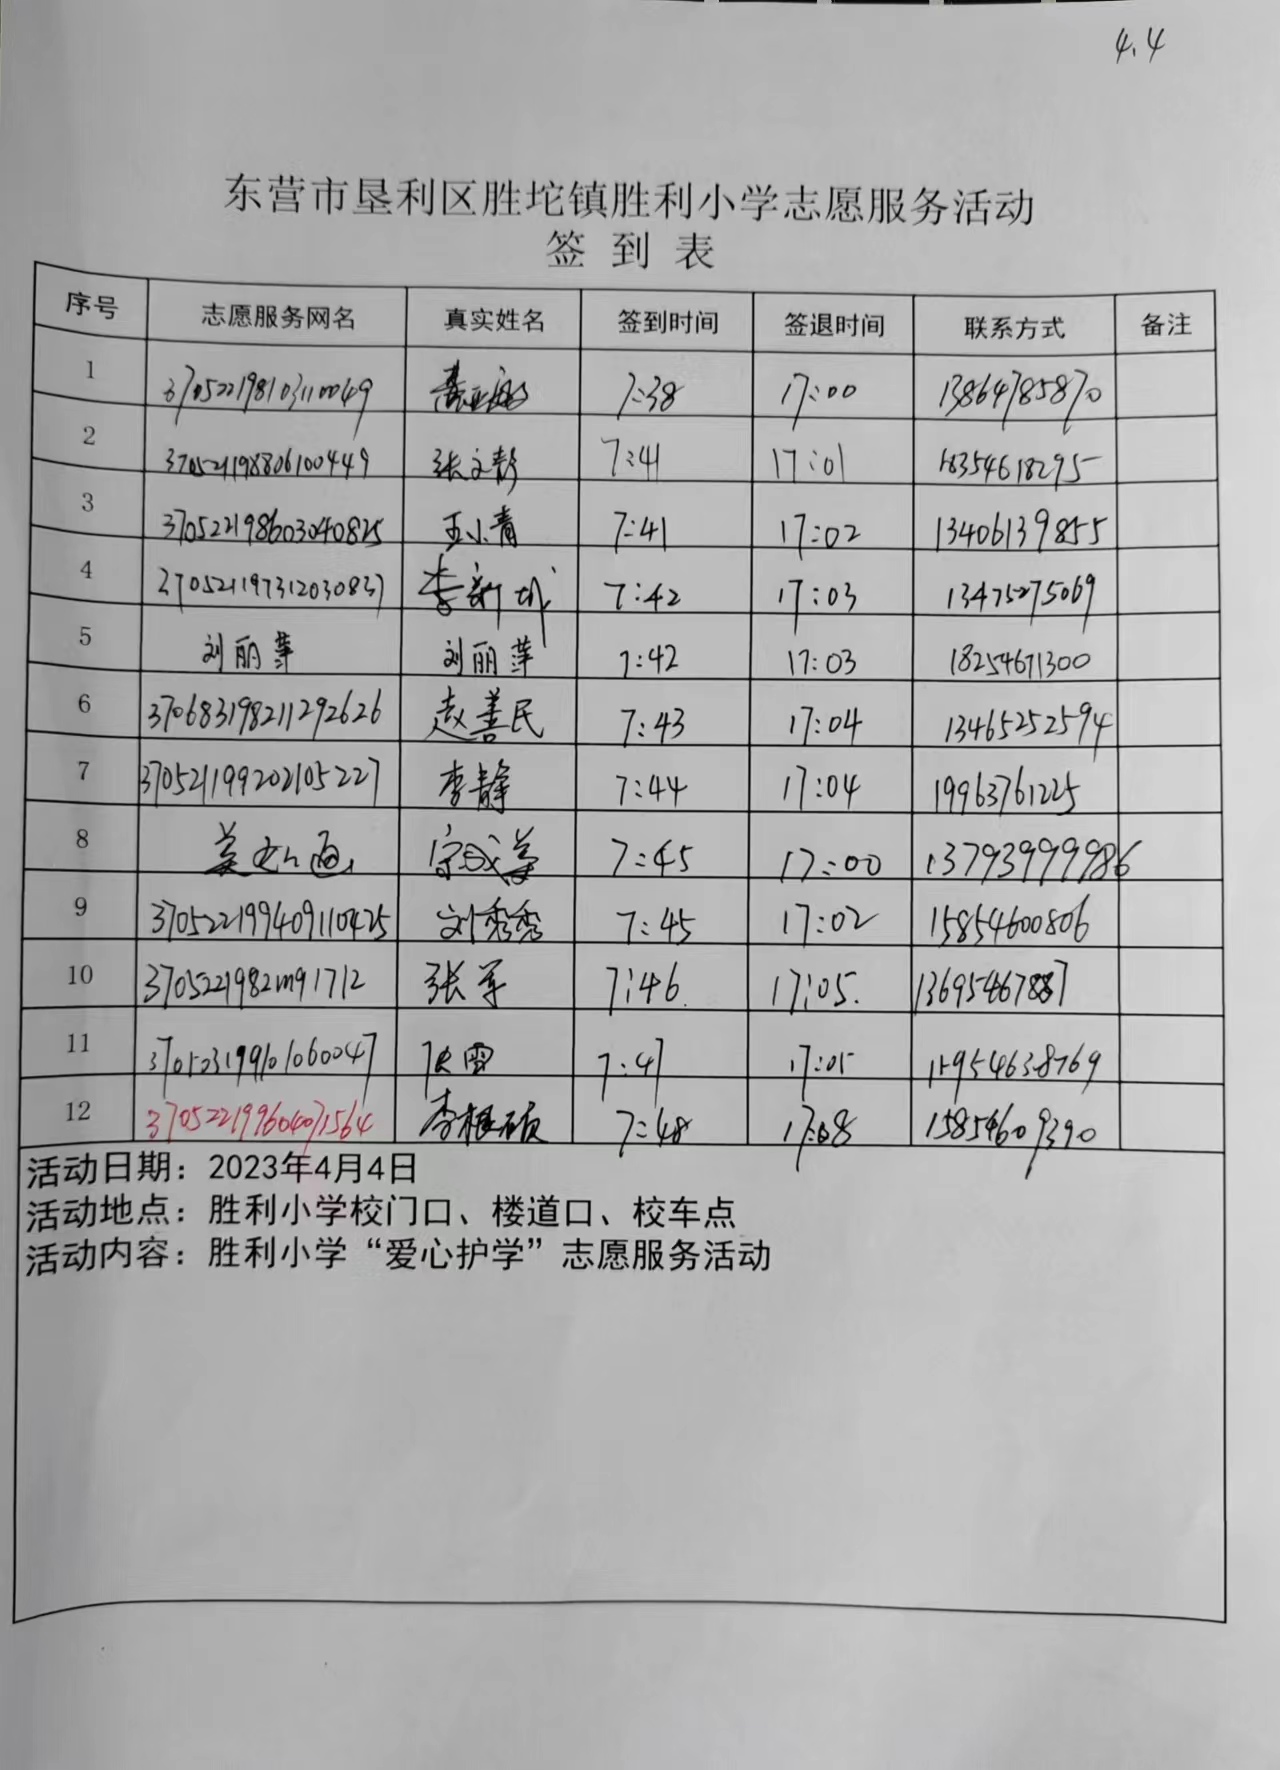 4.4
东营市垦利区胜坨镇胜利小学志愿服务活动
签 到 表
序号 志愿服务网名 真实姓名 签到时间 签退时间 联系方式 备注
1 370522198103110049 7:38 17:00 13864785870
2 370521198806100449 张文静 7:41 17:01 18354618295
3 370522198603040825 王小青 7:41 17:02 13406139855
4 370521197312030837 李新城 7:42 17:03 13475275069
5 刘丽萍 刘丽萍 7:42 17:03 18254671300
6 370683198211292626 赵善民 7:43 17:04 13465252594
7 370521199202105227 李静 7:44 17:04 19963761225
8 7:45 17:00 13793999986
9 370522199409110425 刘秀秀 7:45 17:02 15854600806
10 张军 7:46 17:05 13695467887
11 7:47 17:05 15954638769
12 370522199604071564 李根硕 7:48 17:08 15854609390
活动日期：2023年4月4日
活动地点：胜利小学校门口、楼道口、校车点
活动内容：胜利小学“爱心护学”志愿服务活动